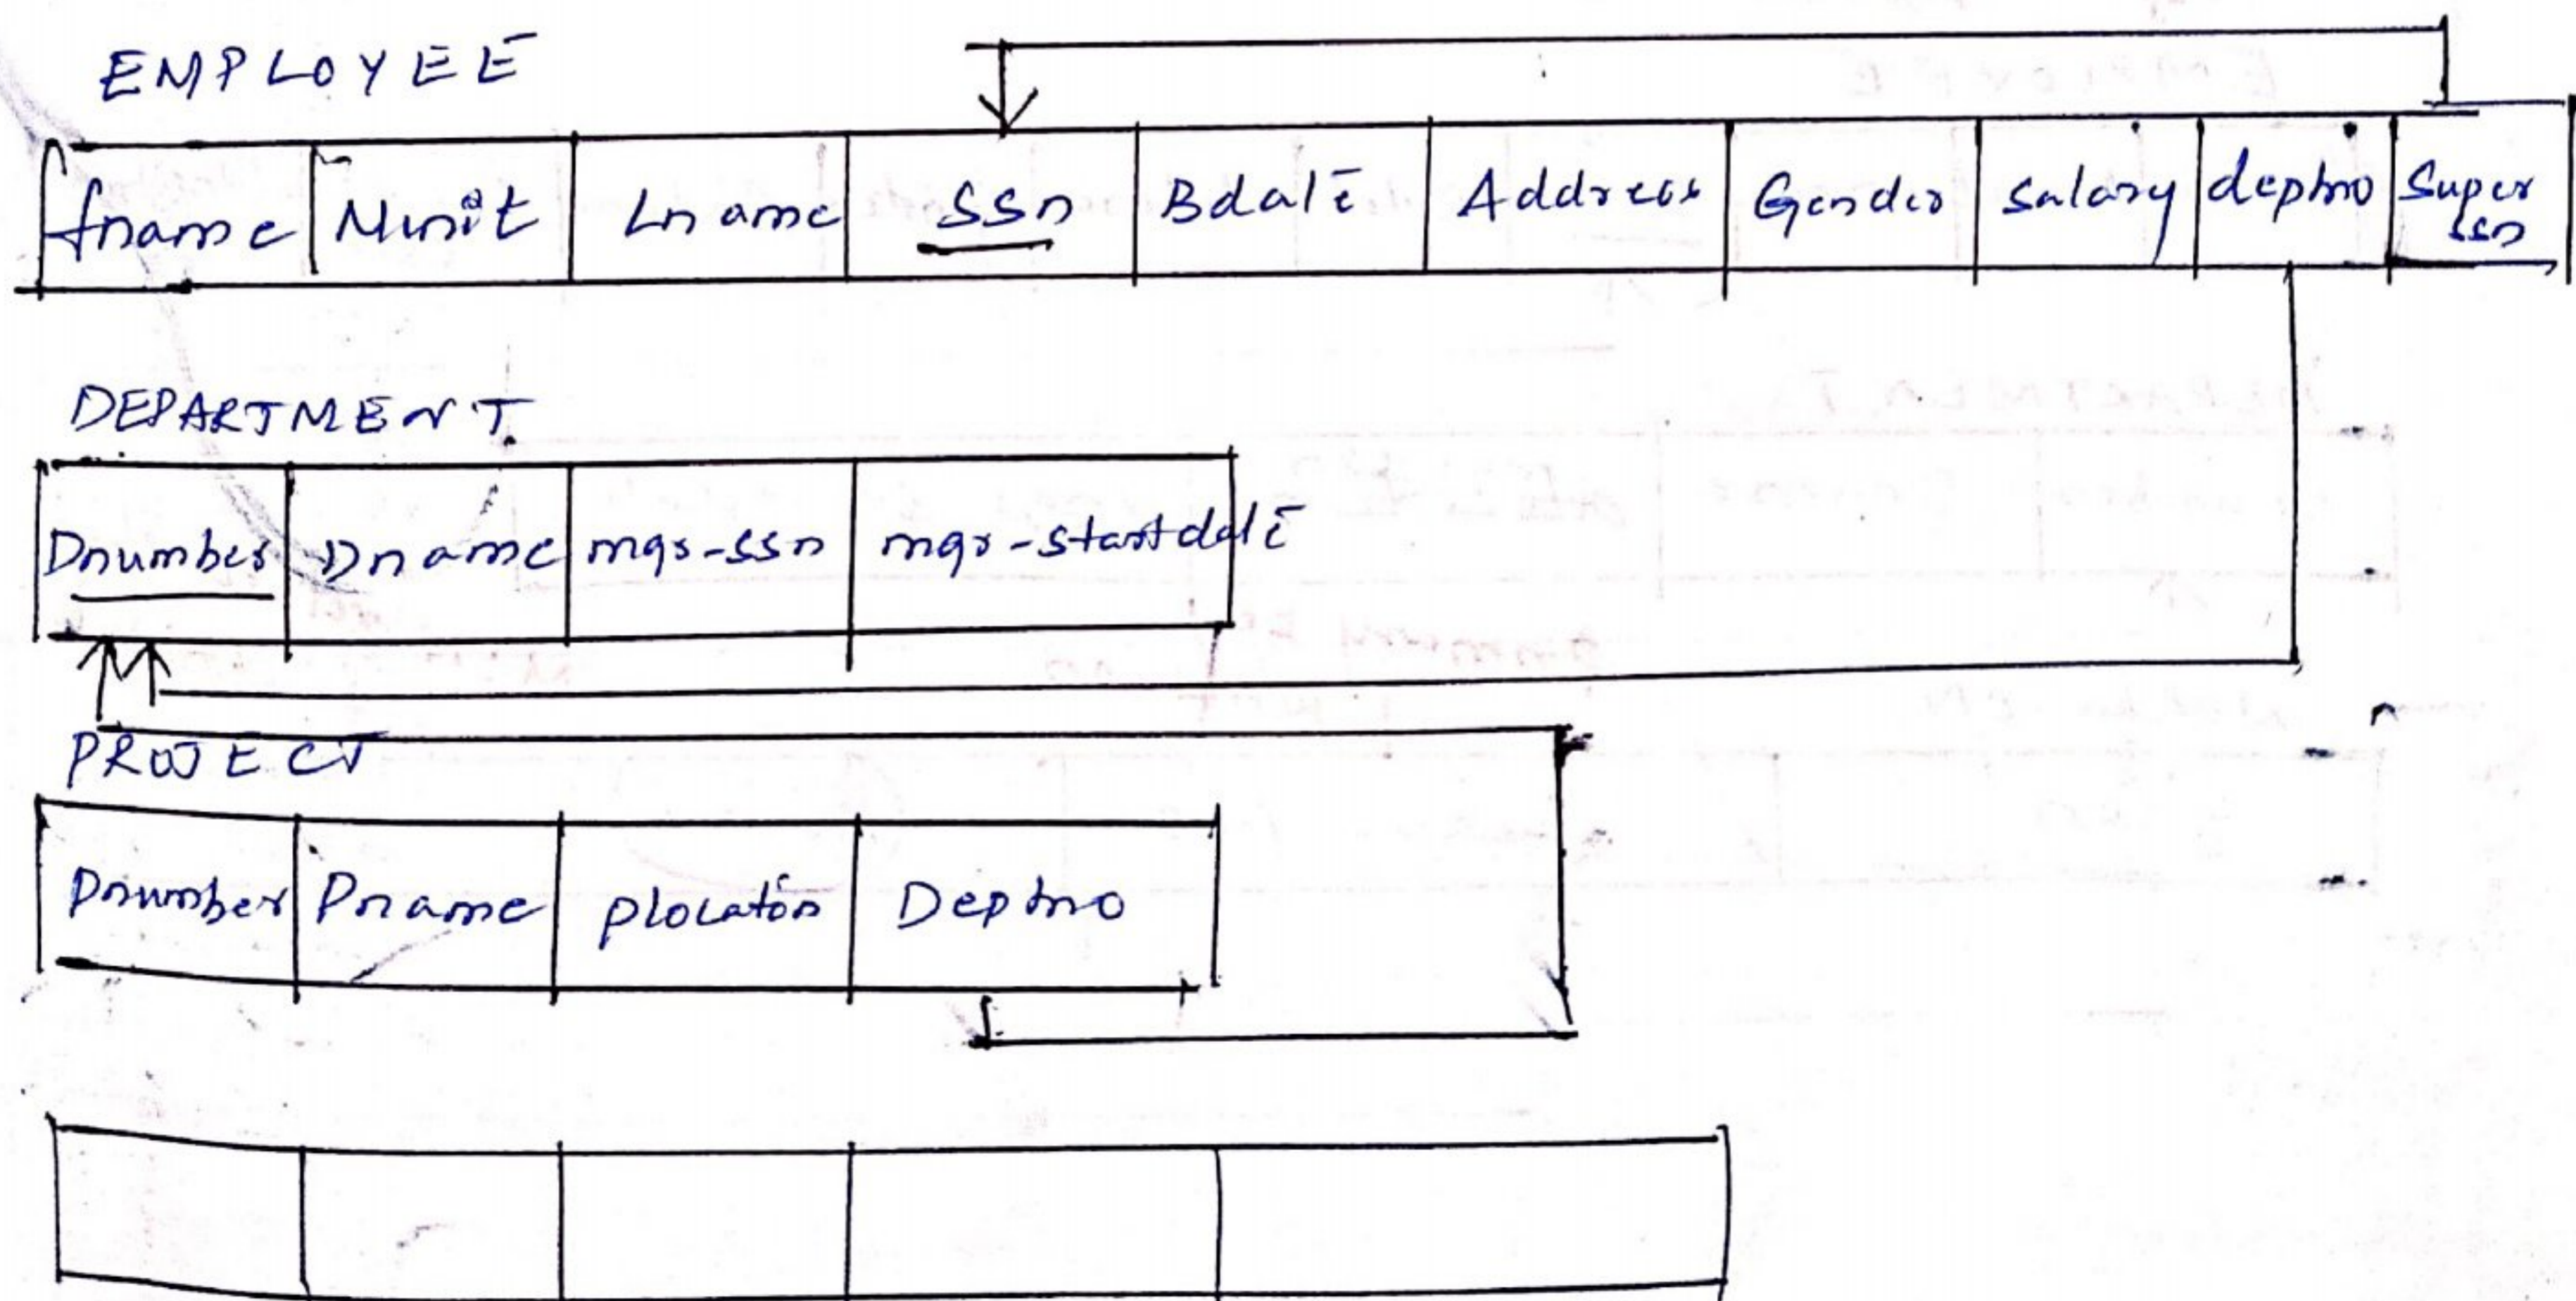 EMPLOYEE
fname Minit Lname SSn Bdate Address Gender salary deptno Super ssn
DEPARTMENT
Dnumber Dname mgr-ssn mgr-startdate
PROJECT
Pnumber Pname plocation Deptno